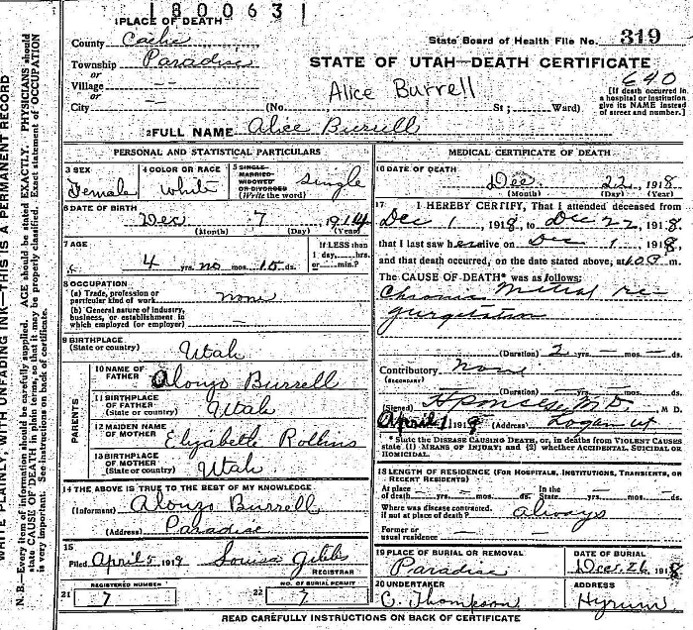 1800631
1 PLACE OF DEATH
County Cache
State Board of Health File No. 319
Township Paradise
or
Village — —
or
STATE OF UTAH—DEATH CERTIFICATE
640
City — —
(No.
Alice Burrell
St; Ward)
[If death occurred in a hospital or institution give its NAME instead of street and number.]
2 FULL NAME Alice Burrell
PERSONAL AND STATISTICAL PARTICULARS
3 SEX
Female
4 COLOR OR RACE
White
5 SINGLE-
MARRIED-
WIDOWED
OR DIVORCED
(Write the word)
Single
6 DATE OF BIRTH
Dec 7 1914
(Month) (Day) (Year)
7 AGE
4 yrs. no mos. 15 ds.
If LESS than
1 day, hrs.
or min.?
8 OCCUPATION
(a) Trade, profession or
particular kind of work none
(b) General nature of industry,
business, or establishment in
which employed (or employer) —
9 BIRTHPLACE
(State or country) Utah
PARENTS
10 NAME OF
FATHER Alonzo Burrell
11 BIRTHPLACE
OF FATHER
(State or country) Utah
12 MAIDEN NAME
OF MOTHER Elizabeth Rollins
13 BIRTHPLACE
OF MOTHER
(State or country) Utah
14 THE ABOVE IS TRUE TO THE BEST OF MY KNOWLEDGE
(Informant) Alonzo Burrell
(Address) Paradise
15
Filed April 5 1919 Louisa Gibbs
REGISTRAR
21 REGISTERED NUMBER
7
22 NO. OF BURIAL PERMIT
7
MEDICAL CERTIFICATE OF DEATH
16 DATE OF DEATH
Dec 22, 1918
(Month) (Day) (Year)
17 I HEREBY CERTIFY, That I attended deceased from
Dec 1, 1918, to Dec 22, 1918,
that I last saw her alive on Dec 1, 1918,
and that death occurred, on the date stated above, at m.
The CAUSE OF DEATH* was as follows:
Chronic Mitral re-
gurgetation
(Duration) 2 yrs. — mos. — ds.
Contributory none
(SECONDARY)
(Duration) — yrs. — mos. — ds.
(Signed) M.D. M D.
April 1 1919 (Address) Logan ut
* State the DISEASE CAUSING DEATH, or, in deaths from VIOLENT CAUSES
state (1) MEANS OF INJURY; and (2) whether ACCIDENTAL, SUICIDAL or
HOMICIDAL.
18 LENGTH OF RESIDENCE (FOR HOSPITALS, INSTITUTIONS, TRANSIENTS, OR
RECENT RESIDENTS)
At place
of death — yrs. — mos. — ds.
In the
State — yrs. — mos. — ds.
Where was disease contracted,
if not at place of death? always
Former or
usual residence — —
19 PLACE OF BURIAL OR REMOVAL
Paradise
DATE OF BURIAL
Dec. 26, 1918
20 UNDERTAKER
C. Thompson
ADDRESS
Hyrum
READ CAREFULLY INSTRUCTIONS ON BACK OF CERTIFICATE
WRITE PLAINLY, WITH UNFADING INK—THIS IS A PERMANENT RECORD
N. B.—Every item of information should be carefully supplied. AGE should be stated EXACTLY. PHYSICIANS should
state CAUSE OF DEATH in plain terms, so that it may be properly classified. Exact statement of OCCUPATION
is very important. See instructions on back of certificate.